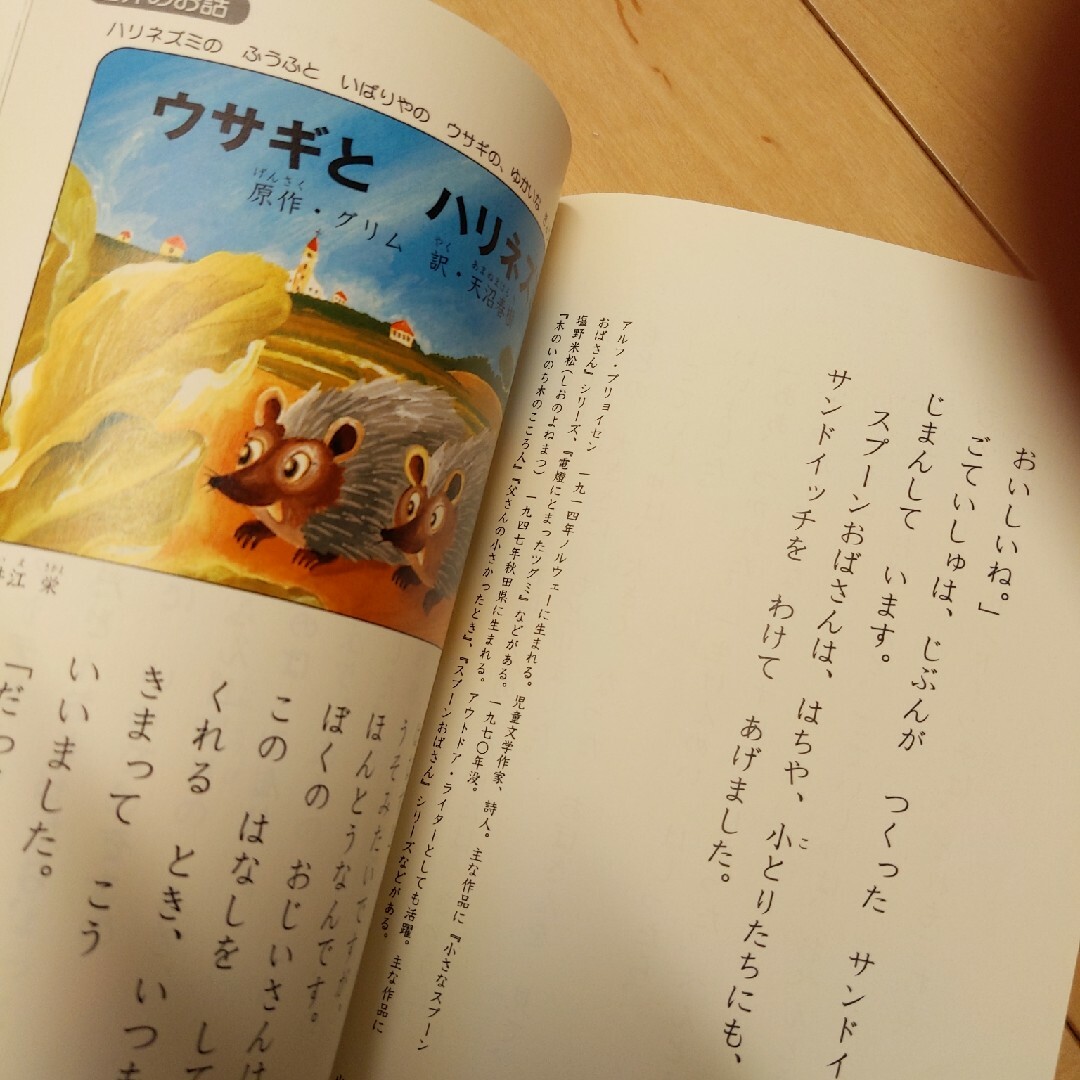 おいしいね。」
ごていしゅは、じぶんが つくった サンドイ
じまんして います。
スプーンおばさんは、はちや、小とりたちにも、
サンドイッチを わけて あげました。
アルフ・プリョイセン 一九一四年ノルウェーに生まれる。児童文学作家、詩人。主な作品に『小さなスプーン
おばさん』シリーズ、『電燈にとまったツグミ』などがある。一九七〇年没。
塩野米松(しおのよねまつ) 一九四七年秋田県に生まれる。アウトドア・ライターとしても活躍。主な作品に
『木のいのち木のこころ人』『父さんの小さかったとき』、『スプーンおばさん』シリーズなどがある。
のお話
ハリネズミの ふうふと いばりやの ウサギの、ゆかいな
ウサギと ハリネズ
げんさく
原作・グリム
やく
訳・天沼春樹
江 栄
うそみたいですが、
ほんとうなんです。
ぼくの おじいさんは
この はなしを して
くれる とき、いつも
きまって こう
いいました。
「だっ